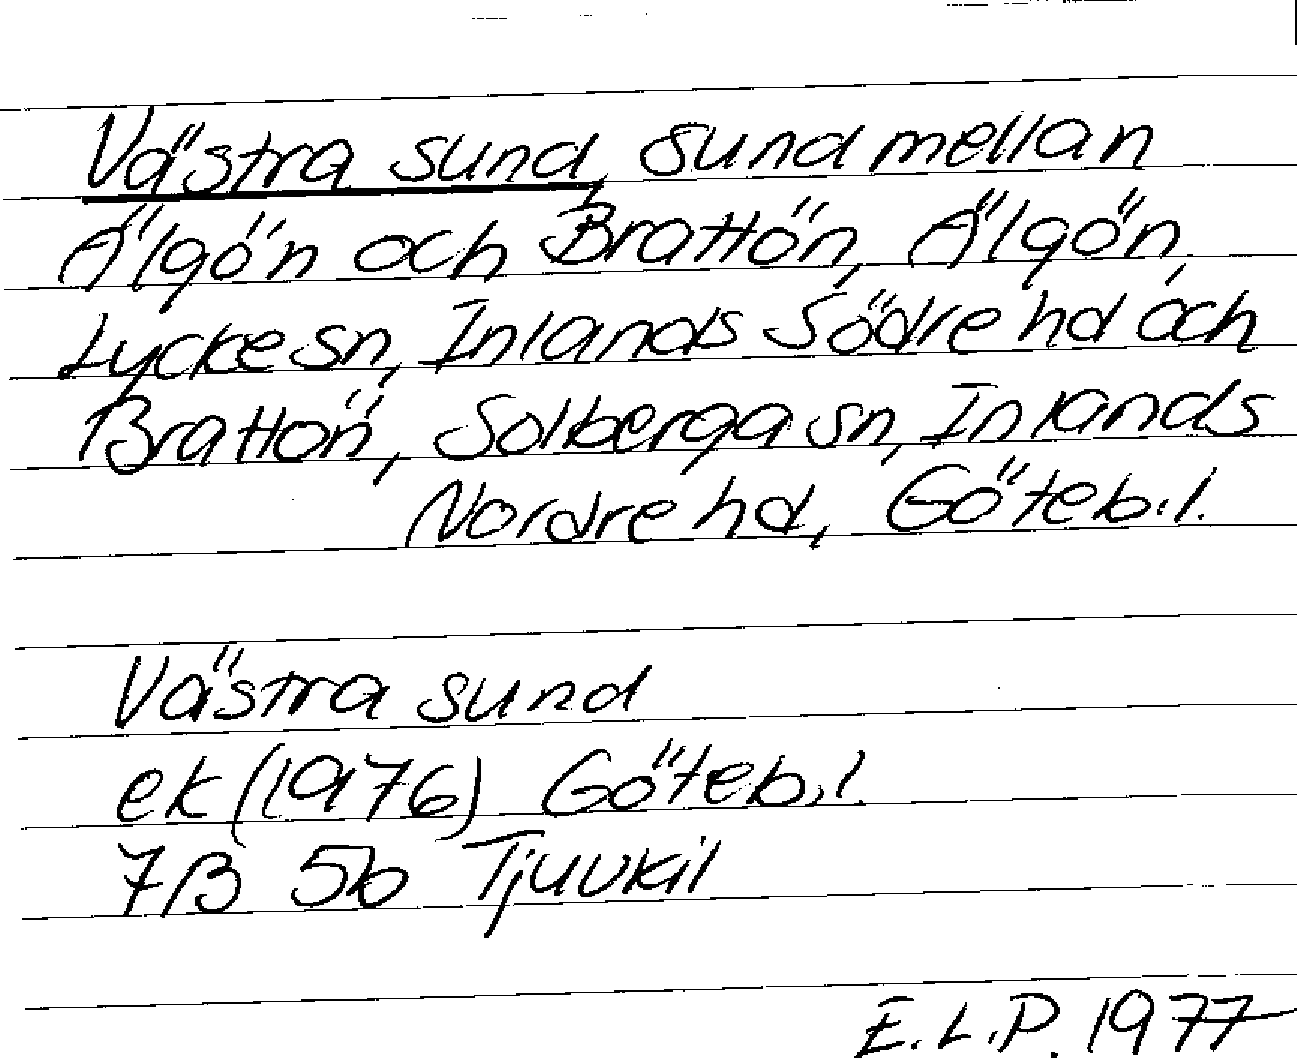 Västra sund, sund mellan
Älgön och Brattön, Älgön,
Lycke sn, Inlands Södre hd och
Brattön, Solberga sn, Inlands
Nordre hd, Göteb.l.
Västra sund
ek (1976) Göteb.l.
7B 5b Tjuvkil
E.L.P. 1977